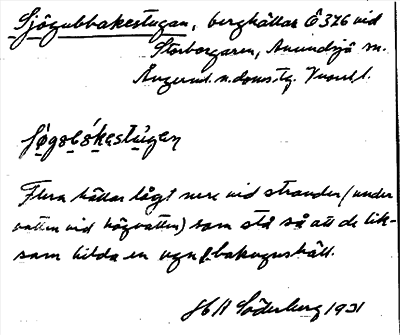 Sjögubbakestugan, berghällar Ö 376 vid
Storborgaren, Anundsjö sn.
Ångerml. n. doms. tg. Vnorrl. l.
Sjøgobåkestúgen
Flera hällar lågt nere vid stranden (under
vatten vid högvatten) som stå så att de lik-
som bilda en ugn f. bakugnshäll.
H H Söderberg 1931